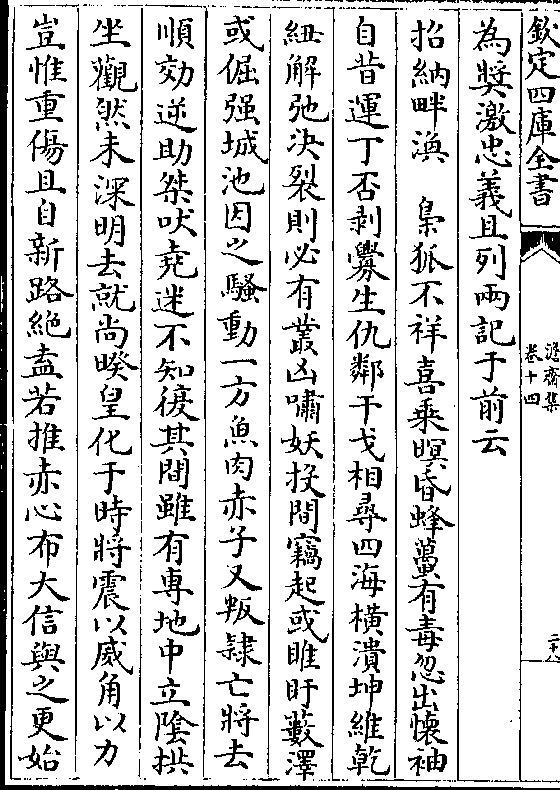 欽定四庫全書
卷十四
為獎激忠義且列兩記于前云
招納畔渙　梟狐不祥喜乘暝昏蜂蠆有毒忽出懷袖
自昔運丁否剥釁生仇鄰干戈相尋四海横潰坤維乾
紐解弛决裂則必有叢凶嘯妖投間竊起或睢盱藪澤
或倔强城池因之騷動一方魚肉赤子又叛隸亡將去
順効逆助桀吠堯迷不知復其間雖有専地中立隂拱
坐觀然未深明去就尚暌皇化于時將震以威角以力
豈惟重傷且自新路絶盍若推赤心布大信與之更始